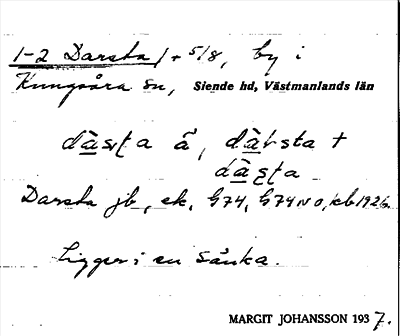 1-2 Darsta / + 5/8, by i
Kungsåra sn, Siende hd, Västmanlands län
dàsṭa å, dàrsta +
dàṣṭa
Darsta jb, ek, G74, G74 NO, kb 1926.
Ligger i en sänka.
MARGIT JOHANSSON 1937.